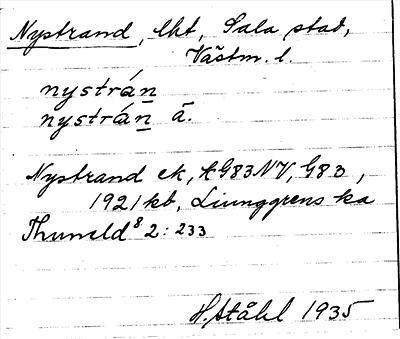 Nystrand, lht, Sala stad,
Västm. l.
nystrán
nystrán ä.
Nystrand ek, AG83NV, G83,
1921 kb, Ljunggrens ka
Thuneld⁸ 2: 233
H. Ståhl 1935